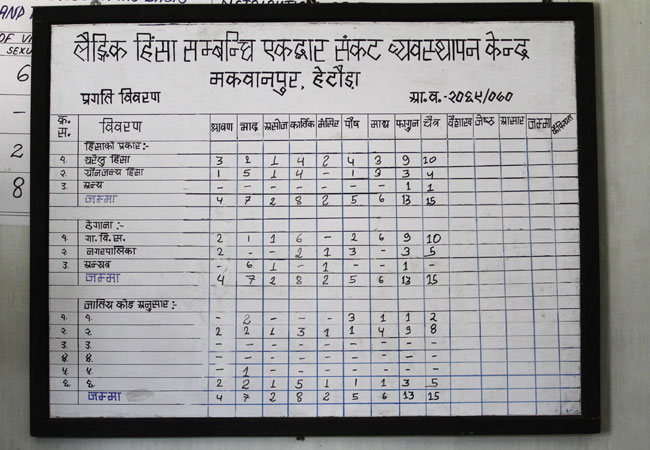 AND T
OF VI
SEXU
6
-
2
8
लैङ्गिक हिंसा सम्बन्धि एकद्वार संकट व्यवस्थापन केन्द्र
मकवानपुर, हेटौडा
प्रगति विवरण आ.व.-२०६९/०७०
क्र.स. विवरण श्रावण भाद्र असोज कार्तिक मंसिर पौष माघ फागुन चैत्र वैशाख जेष्ठ असार जम्मा
हिंसाको प्रकार:-
१. घरेलु हिंसा 3 2 1 4 2 4 3 9 10
२. यौनजन्य हिंसा 1 5 1 4 - 1 3 3 4
३. अन्य - - - - - - - 1 1
जम्मा 4 7 2 8 2 5 6 13 15
ठेगाना:-
१. गा.वि.स. 2 1 1 6 - 2 6 9 10
२. नगरपालिका 2 - - 2 1 3 - 3 5
३. अन्यत्र - 6 1 - 1 - - 1 -
जम्मा 4 7 2 8 2 5 6 13 15
जातिय कोड अनुसार:-
१. १. - 2 - - - 3 1 1 2
२. २. 2 2 1 3 1 1 4 9 8
३. ३. - - - - - - - - -
४. ४. - - - - - - - - -
५. ५. - 1 - - - - - - -
६. ६. 2 2 1 5 1 1 1 3 5
जम्मा 4 7 2 8 2 5 6 13 15